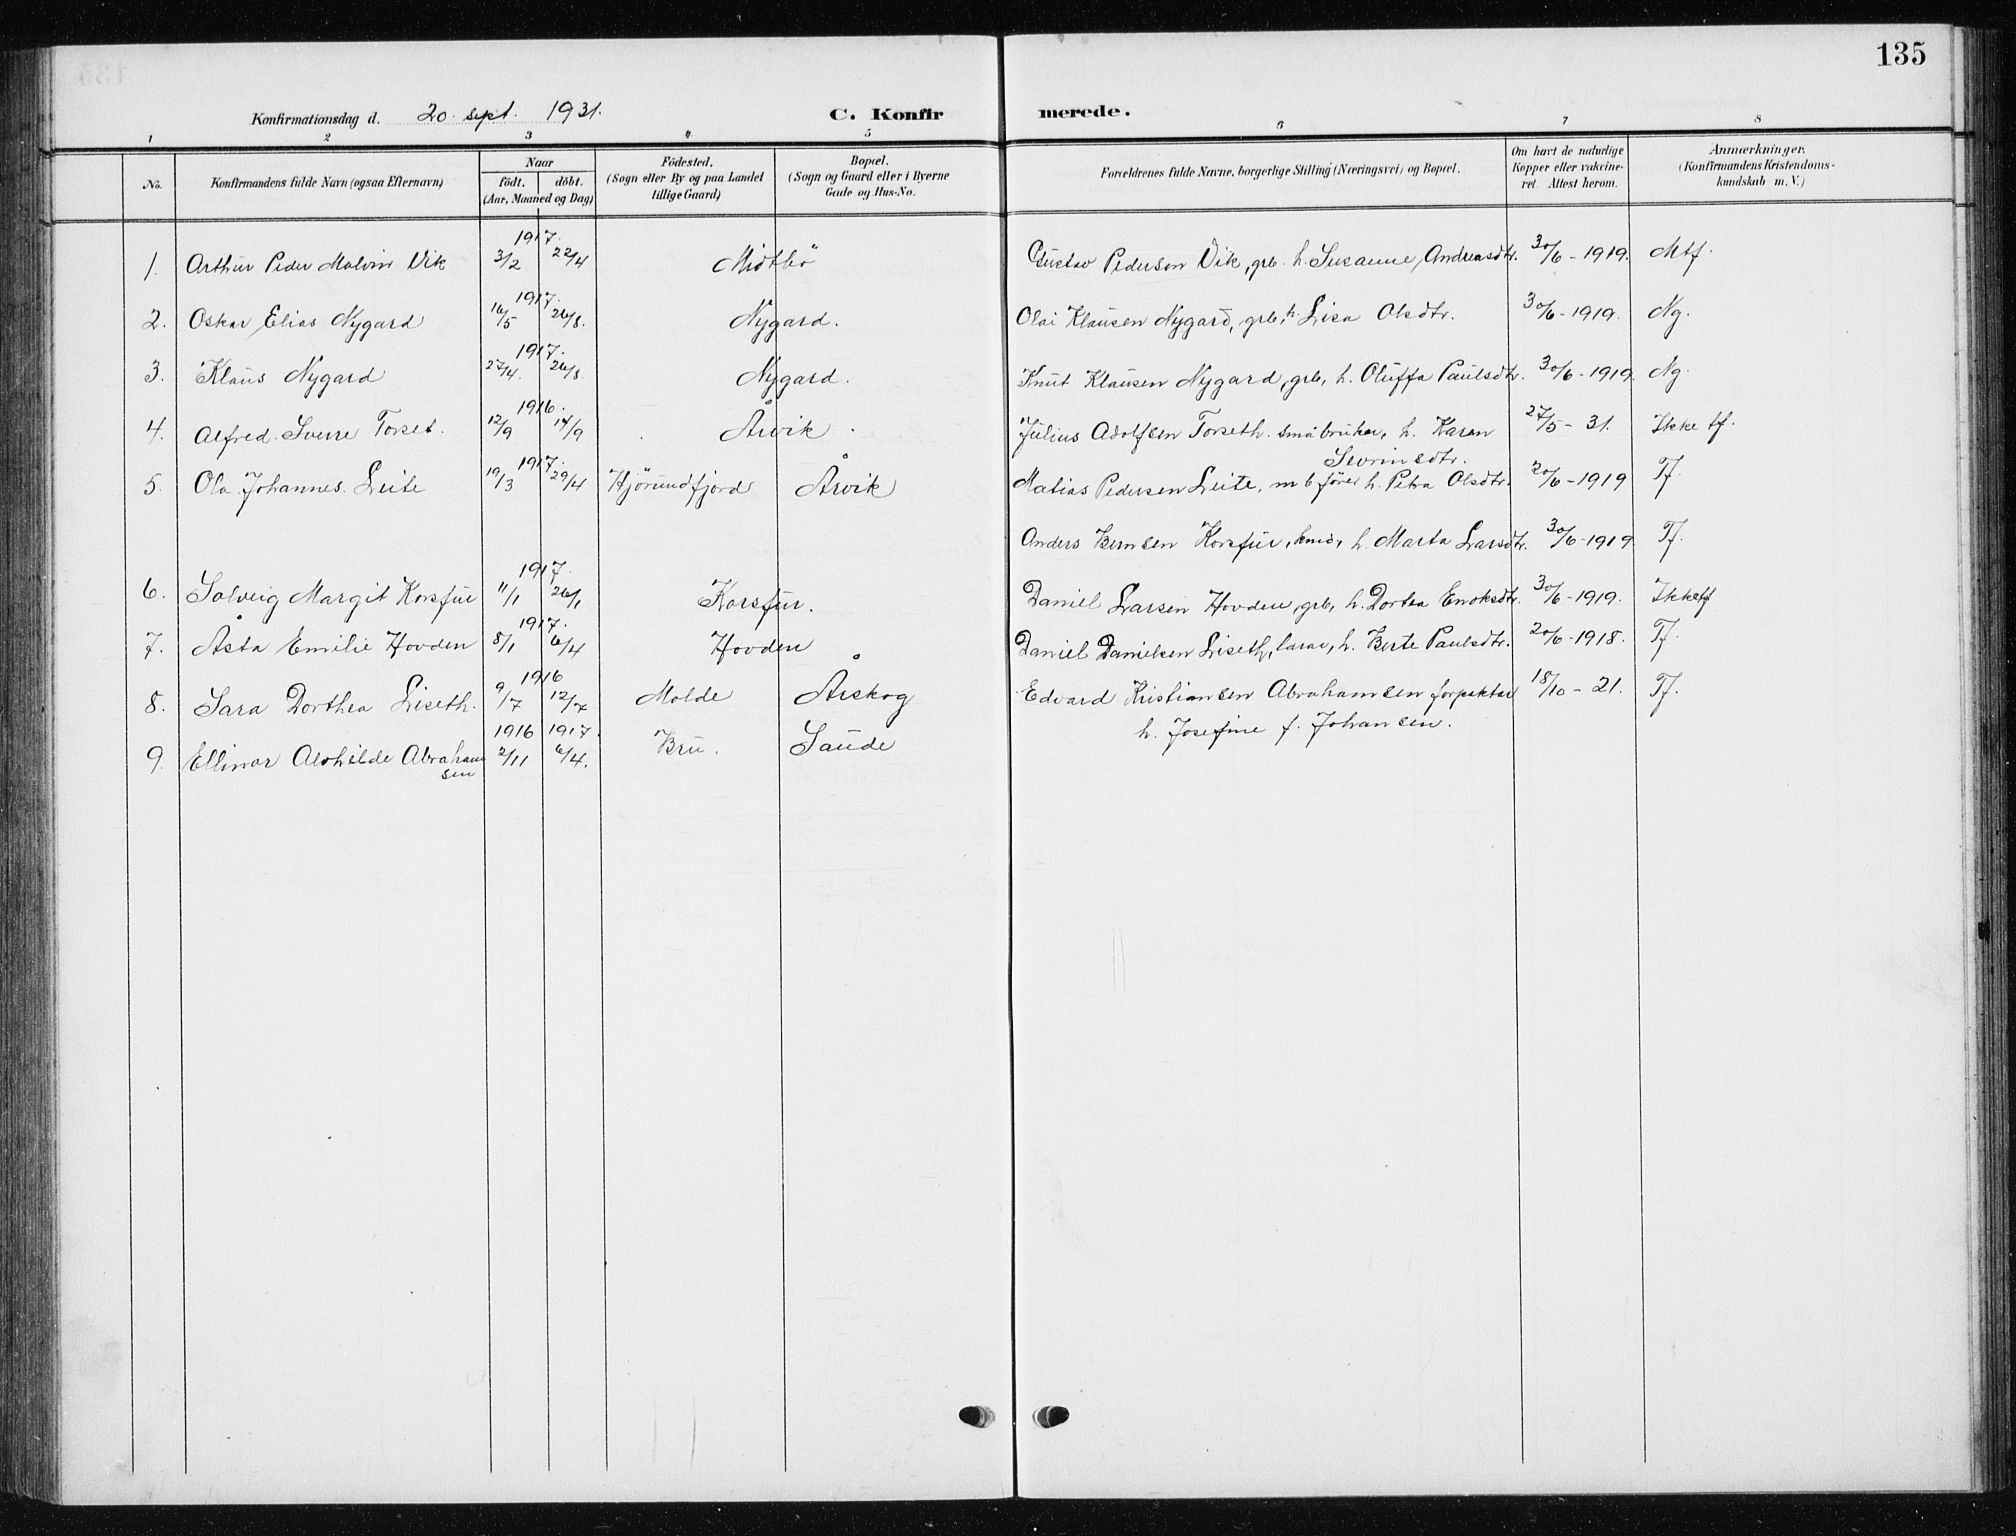 135
Konfirmationsdag d. 20. sept. 1931. C. Konfirmerede.
1 2 3 4 5 6 7 8
No. Konfirmandens fulde Navn (ogsaa Efternavn) Naar födt. döbt. (Aar, Maaned og Dag) Födested. (Sogn eller By og paa Landet tillige Gaard) Bopæl. (Sogn og Gaard eller i Byerne Gade og Hus-No. Forældrenes fulde Navne, borgerlige Stilling (Næringsvei) og Bopæl. Om havt de naturlige Kopper eller vakcineret. Attest herom. Anmærkninger. (Konfirmandens Kristendomskundskab m. V.)
1917.
1. Arthur Peder Malvin Vik 3/2 22/4 Midtbö Gustav Pedersen Vik, grb. h. Susanne Andreasdtr. 30/6 - 1919. Mtf.
1917.
2. Oskar Elias Nygard 16/5 26/8. Nygard. Olai Klausen Nygard, grb, h. Lisa Olsdtr. 30/6 - 1919. Ng.
1917.
3. Klaus Nygard 27/4. 26/8. Nygard. Knut Klausen Nygard, grb, h. Oluffa Paulsdtr. 30/6 - 1919. Ng.
1916.
4. Alfred Sverre Torset. 12/9 14/9 Årvik Julius Adolfsen Torseth. småbruker, h. Karen Sevrinsdtr. 27/5 - 31. Ikke tf.
1917.
5. Ola Johannes Leite 19/3 29/4 Hjörundfjord Årvik Matias Pedersen Leite, mb förer h. Petra Olsdtr. 20/6 - 1919 Tf.
Anders Bernsen Korsfur, h. Marta Larsdtr. 30/6 - 1919. Tf.
1917.
6. Solveig Margit Korsfur 11/1 26/1 Korsfur. Daniel Larsen Hovden, grb, h. Dortea Enoksdtr. 30/6 - 1919. Ikke tf
1917.
7. Åsta Emilie Hovden 8/1 6/4 Hovden Daniel Danielsen Liseth, lærar, h. Berte Paulsdtr. 20/6 - 1918. Tf.
1916
8. Sara Dorthea Liseth. 9/7 12/7 Molde Årskog Edvard Kristiansen Abrahamsen forpaktar 18/10 - 21. Tf.
h. Josefine f. Johansen.
1916 1917.
9. Ellinor Alvhilde Abrahamsen 2/11 6/4. Bru. Saude